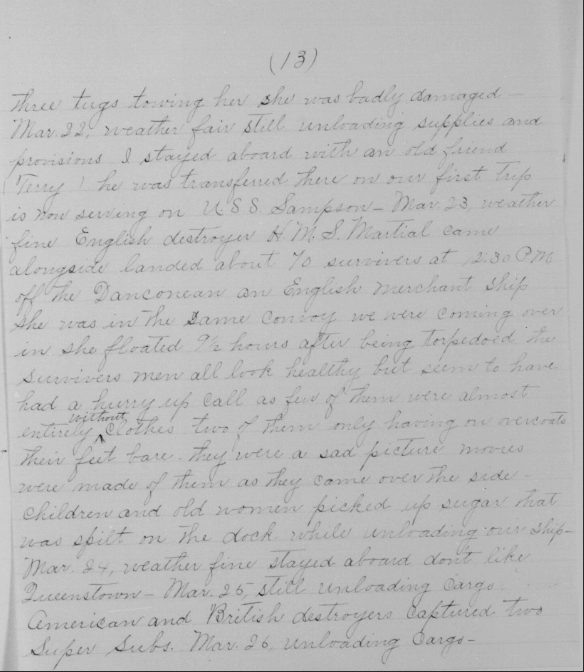 (13)
three tugs towing her she was badly damaged -
Mar. 22, weather fair still unloading supplies and
provisions I stayed aboard with an old friend
"Terry" he was transferred there on our first trip
is now serving on U.S.S Sampson - Mar. 23, weather
fine English destroyer H.M.S. Martial came
alongside landed about 70 survivers at 12.30 P.M.
off the Danconean an English merchant ship
she was in the same convoy we were coming over
in she floated 9½ hours after being torpedoed the
survivers men all look healthy but seem to have
had a hurry up call as few of them were almost
entirely without clothes two of them only having on overcoats
their feet bare. they were a sad picture movies
were made of them as they came over the side -
children and old women picked up sugar that
was spilt on the dock while unloading our ship -
Mar. 24, weather fine stayed aboard dont like
Queenstown - Mar. 25, still unloading cargo
American and British destroyers captured two
Super Subs. Mar. 26, unloading cargo -